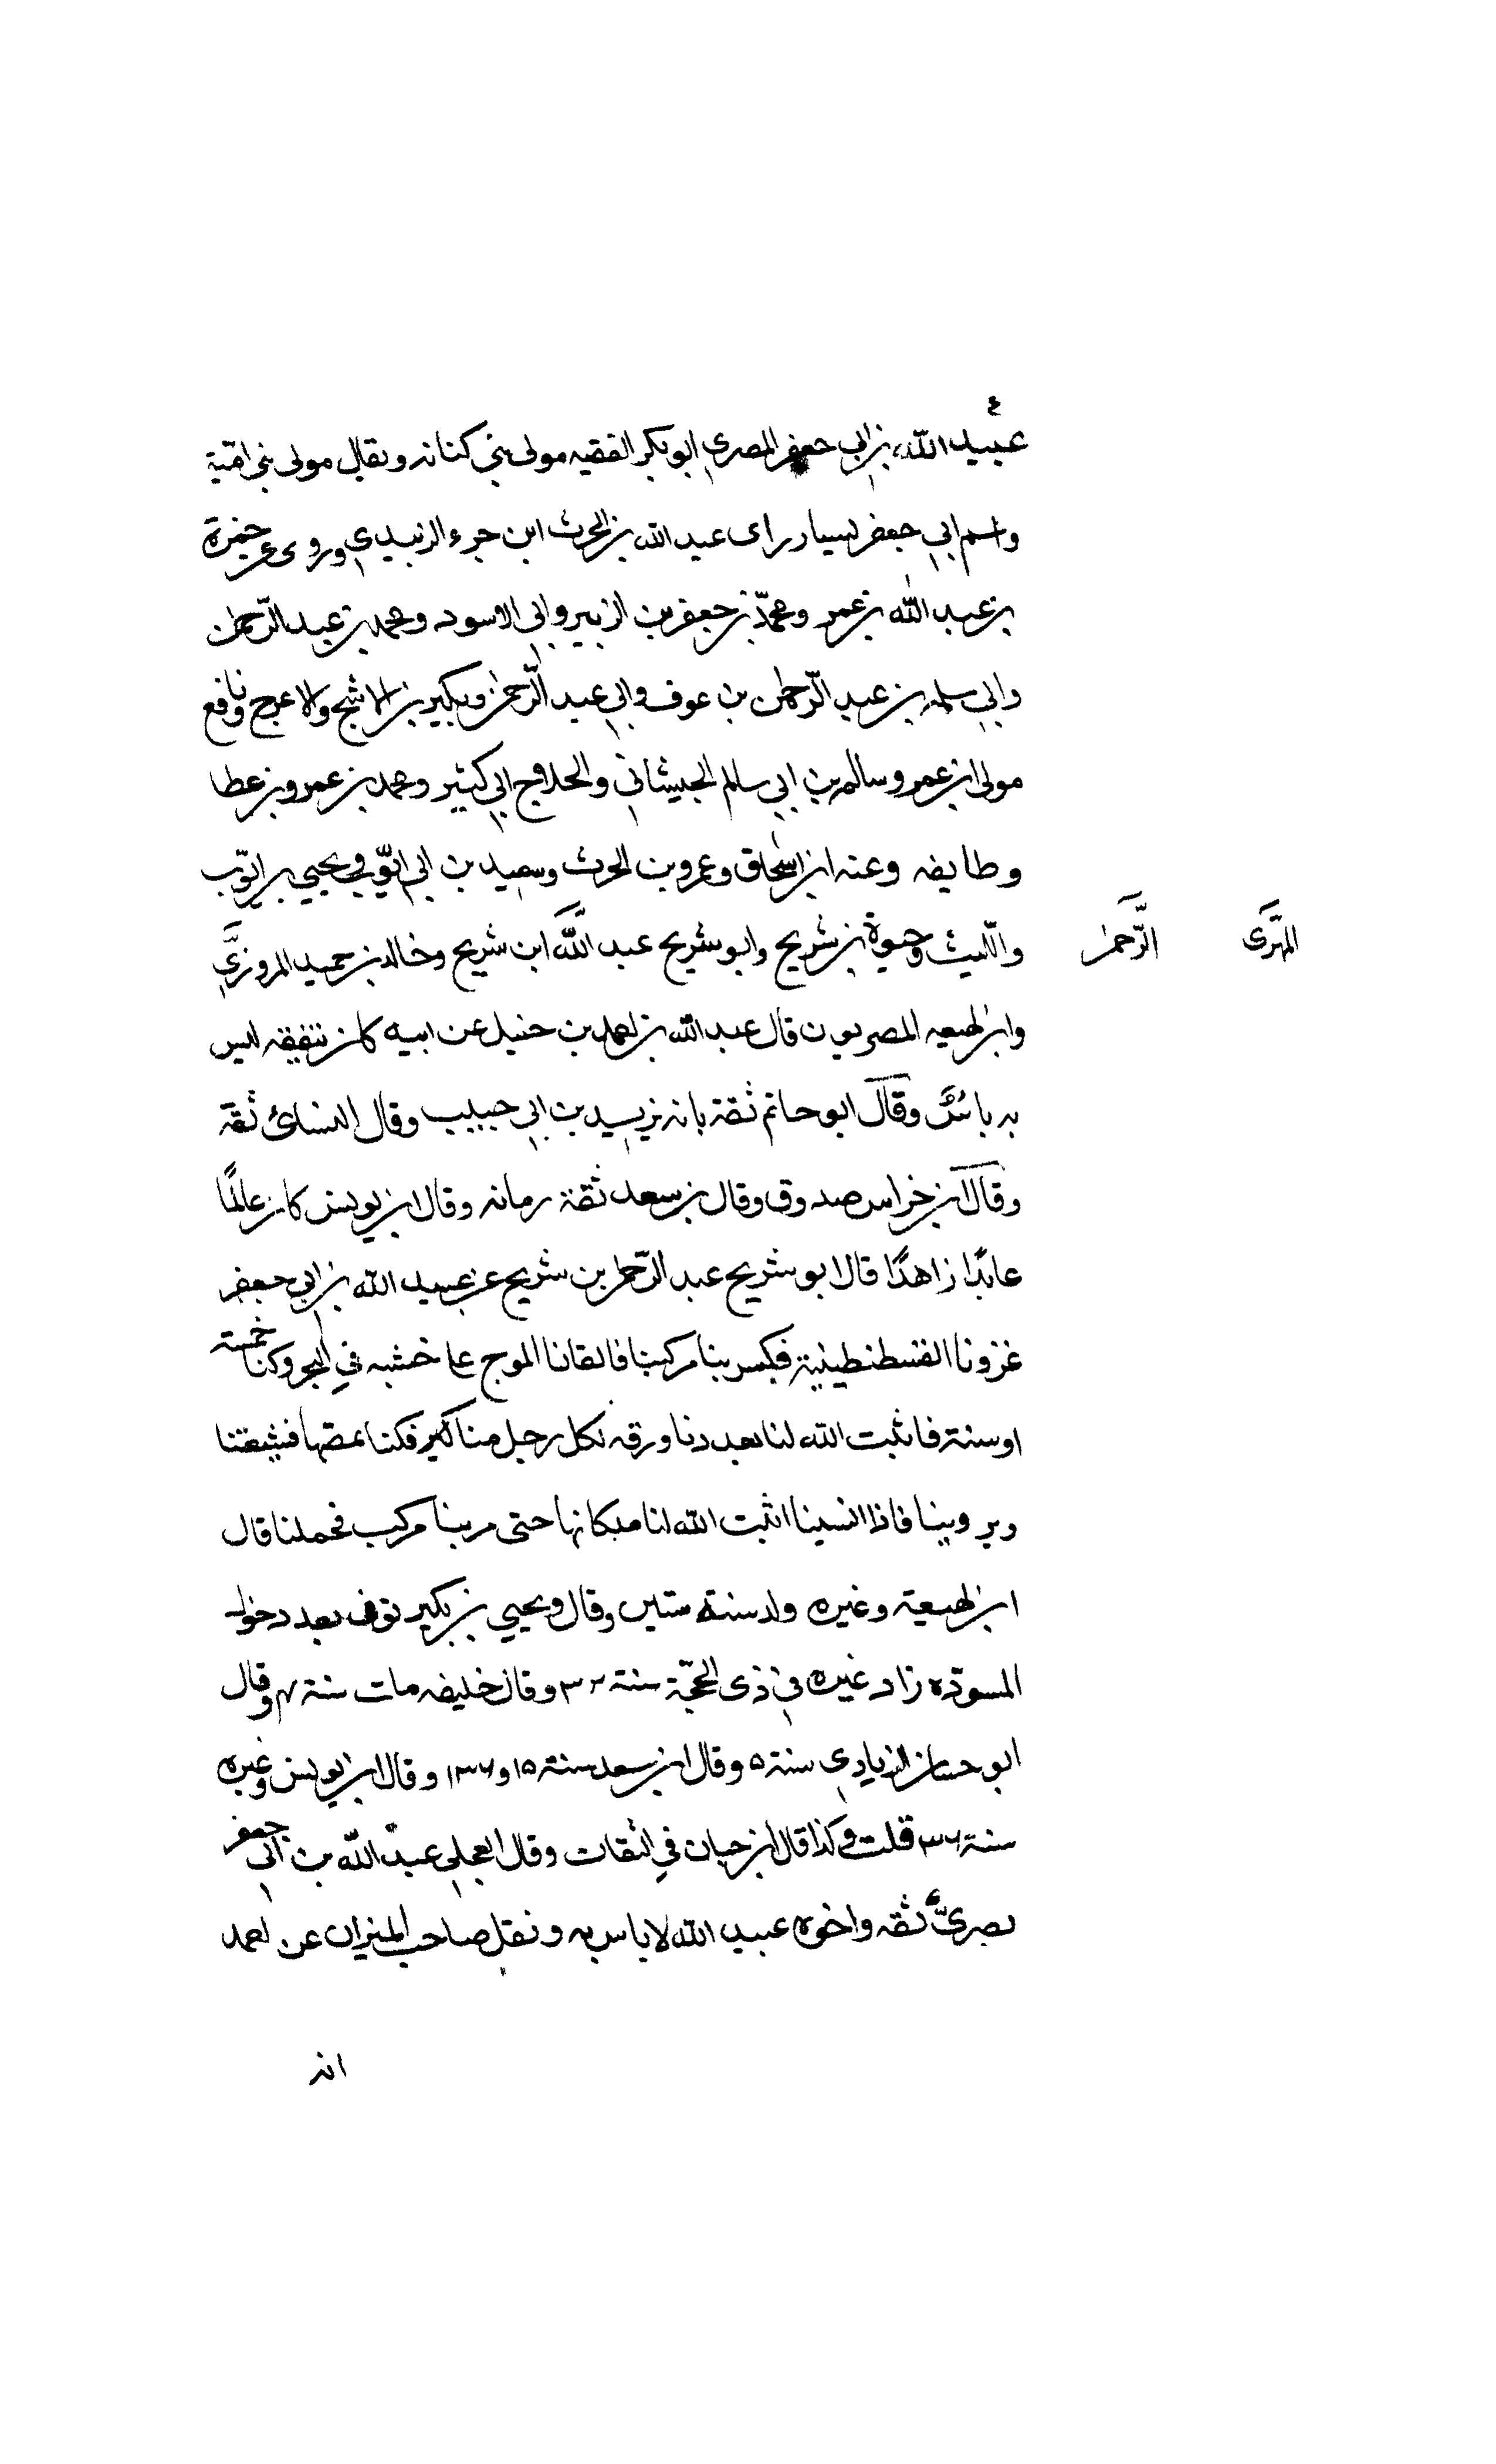 ع
عبيد الله بن ابي جعفر المصري ابو بكر الفقيه مولى بني كنانه ويقال مولى بني امية
واسم ابي جعفر يسار راى عبد الله بن الحرث ابن جزء الزبيدي وروى عن حمزة
بن عبد الله بن عمر ومحمّد بن جعفر بن الزبير وابي الاسود ومحمد بن عبد الرّحمن
وابي سلمه بن عبد الرّحمن بن عوف وابي عبد الرّحمن وبكير بن الاشج والاعرج ونافع
مولى ابن عمر وسالم بن ابي سالم الجيشاني والجلاح ابي كثير ومحمد بن عمرو بن عطا
وطايفه وعنه ابن اسحاق وعمرو بن الحرث وسعيد بن ابي ايّوب ويحيى بن ايّوب
والّليث وحيوة بن شريح وابو شريح عبد اللّه ابن شريح وخالد بن حميد المروزيّ
الرّحمن
المهّرى
وابن لهيعه المصريون قال عبد الله بن احمد بن حنبل عن ابيه كان يتفقه ليس
به باسٌ وقال ابو حاتم ثقة بابه يزيد بن ابي حبيب وقال النسائ ثقة
وقال ابن خراس صدوق وقال بن سعد ثقة زمانه وقال ابن يونس كان عالمًا
عابدًا زاهدًا قال ابو شريح عبد الرّحمن بن شريح عن عبيد الله بن ابي جعفر
غزونا القسطنطينية فكسر بنا مركبنا فالقانا الموج على خشبه في البحر وكنا خمسة
او ستة فانبت الله لنا بعددنا ورقه لكل رجل منا فكنا نمصّها فتشبعنا
وتروينا فاذا امسينا انبت الله لنا مكانها حتى مر بنا مركب فحملنا قال
ابن لهيعة وغيره ولد سنة ستين وقال ويحيى بن بكير توفى بعد دخول
المسوّده زاد غيره في ذى الحجّة سنة ٣٢ وقال خليفه مات سنة ٤ وقال
ابو حسان الزيادي سنة ٥ وقال ابن سعد سنة ١٥ و١٣٦ وقال ابن يونس وغيره
سنة ٣٦ قلت وكذا قال ابن حبان في الثقات وقال العجلي عبد الله بن ابي جعفر
بصريٌّ ثقه واخوه عبيد الله لا باس به ونقل صاحب الميزان عن احمد
انه